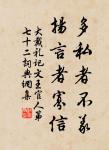 多私者不義
揚言者寡信
大戴礼记文王官人第
七十二词典网集